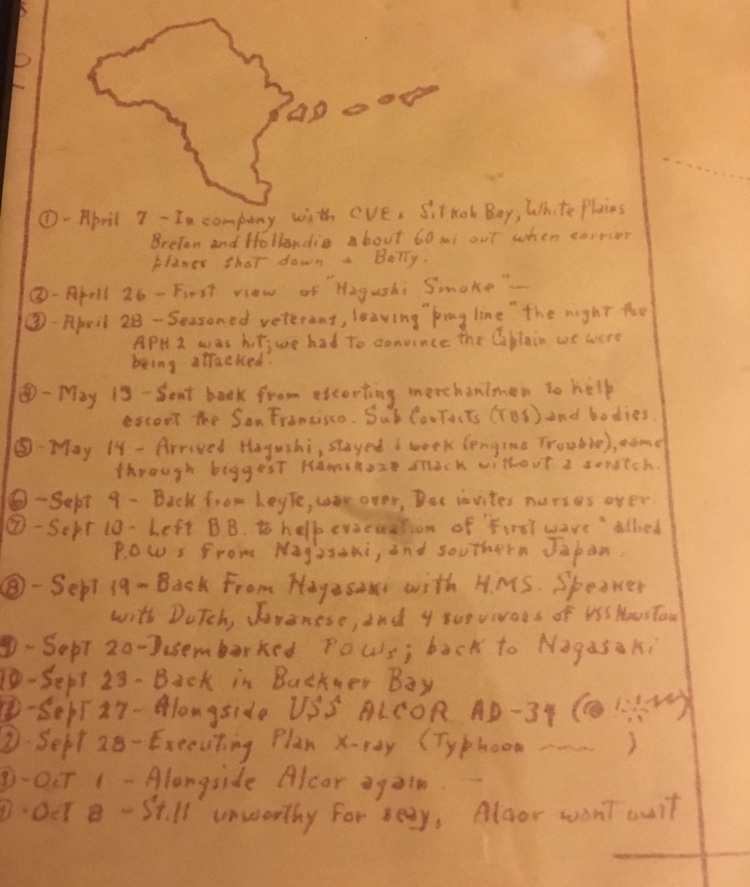 ① - April 7 - In company with CVE s Sitkoh Bay, White Plains
Breton and Hollandia about 60 mi out when carrier
planes shot down a Betty.
② - April 26 - First view of "Hagushi Smoke" -
③ - April 28 - Seasoned veterans, leaving "ping line" the night the
APH 2 was hit; we had to convince the Captain we were
being attacked.
④ - May 13 - Sent back from escorting merchantmen to help
escort the San Francisco. Sub Contacts (TBS) and bodies.
⑤ - May 14 - Arrived Hagushi, stayed 1 week (engine Trouble), came
through biggest Kamakaze attack without a scratch.
⑥ - Sept 9 - Back from Leyte, war over, Doc invites nurses over.
⑦ - Sept 10 - Left B.B. to help evacuation of "first wave" allied
P.O.W s from Nagasaki, and southern Japan.
⑧ - Sept 19 - Back From Nagasaki with H.M.S. Speaker
with Dutch, Javanese, and 4 survivors of USS Houston
⑨ - Sept 20 - Disembarked P O Ws; back to Nagasaki
⑩ - Sept 23 - Back in Buckner Bay
⑪ - Sept 27 - Alongside USS ALCOR AD-34
⑫ - Sept 28 - Executing Plan X-ray (Typhoon )
⑬ - Oct 1 - Alongside Alcor again. -
⑭ - Oct 8 - Still unworthy for seay, Alcor wont wait